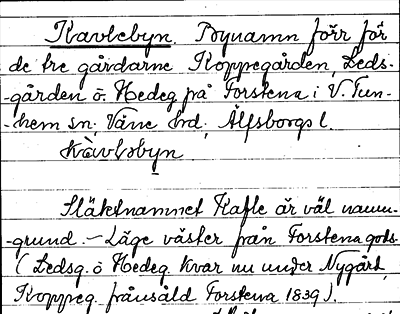 Kavlebyn. Bynamn förr för
de tre gårdarne Koppegården, Leds-
-gården o. Hedeg på Forstena i V. Tun-
-hem sn, Väne hd, Älfsborgs l.
Kàvlsbyn
Släktnamnet Kafle är väl namn-
-grund. – Läge väster från Forstena gods
(Ledsg. o Hedeg. kvar nu under Nygård,
Koppeg. frånsåld Forstena 1839).